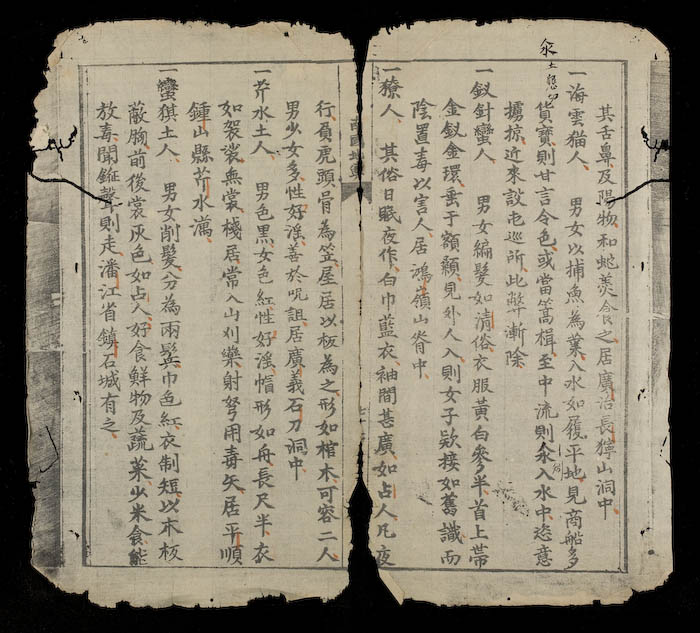 其舌鼻及陽物和蛇羮食之居廣治長獰山洞中
一海雲猫人 男女以捕魚為業入水如履平地見商船多
貨寶則甘言令色或當篙楫至中流則氽入水中恣意
擄掠近來設屯巡所此弊漸除
一釵針蠻人 男女編髮如清俗衣服黃白參半首上帶
金釵金環垂于額顙見外人入則女子欵接如舊識而
陰置毒以害人居鴻嶺山脊中
一獠人 其俗日眠夜作白巾藍衣袖間甚廣如占人凡夜
行頂虎頭骨為笠屋居以板為之形如棺木可容二人
男少女多性好淫善於呪詛居廣義石刀洞中
一芥水土人 男色黑女色紅性好淫帽形如舟長尺半衣
如袈裟無裳棧居常入山刈欒射弩用毒矢居平順
鍾山縣芥水澫
一蠻猉土人 男女削髮分為兩鬂巾色紅衣制短以木板
蔽胸前後裳灰色如占人好食鮮物及蔬菜少米食能
放毒聞鎚聲則走潘江省鎮石城有之